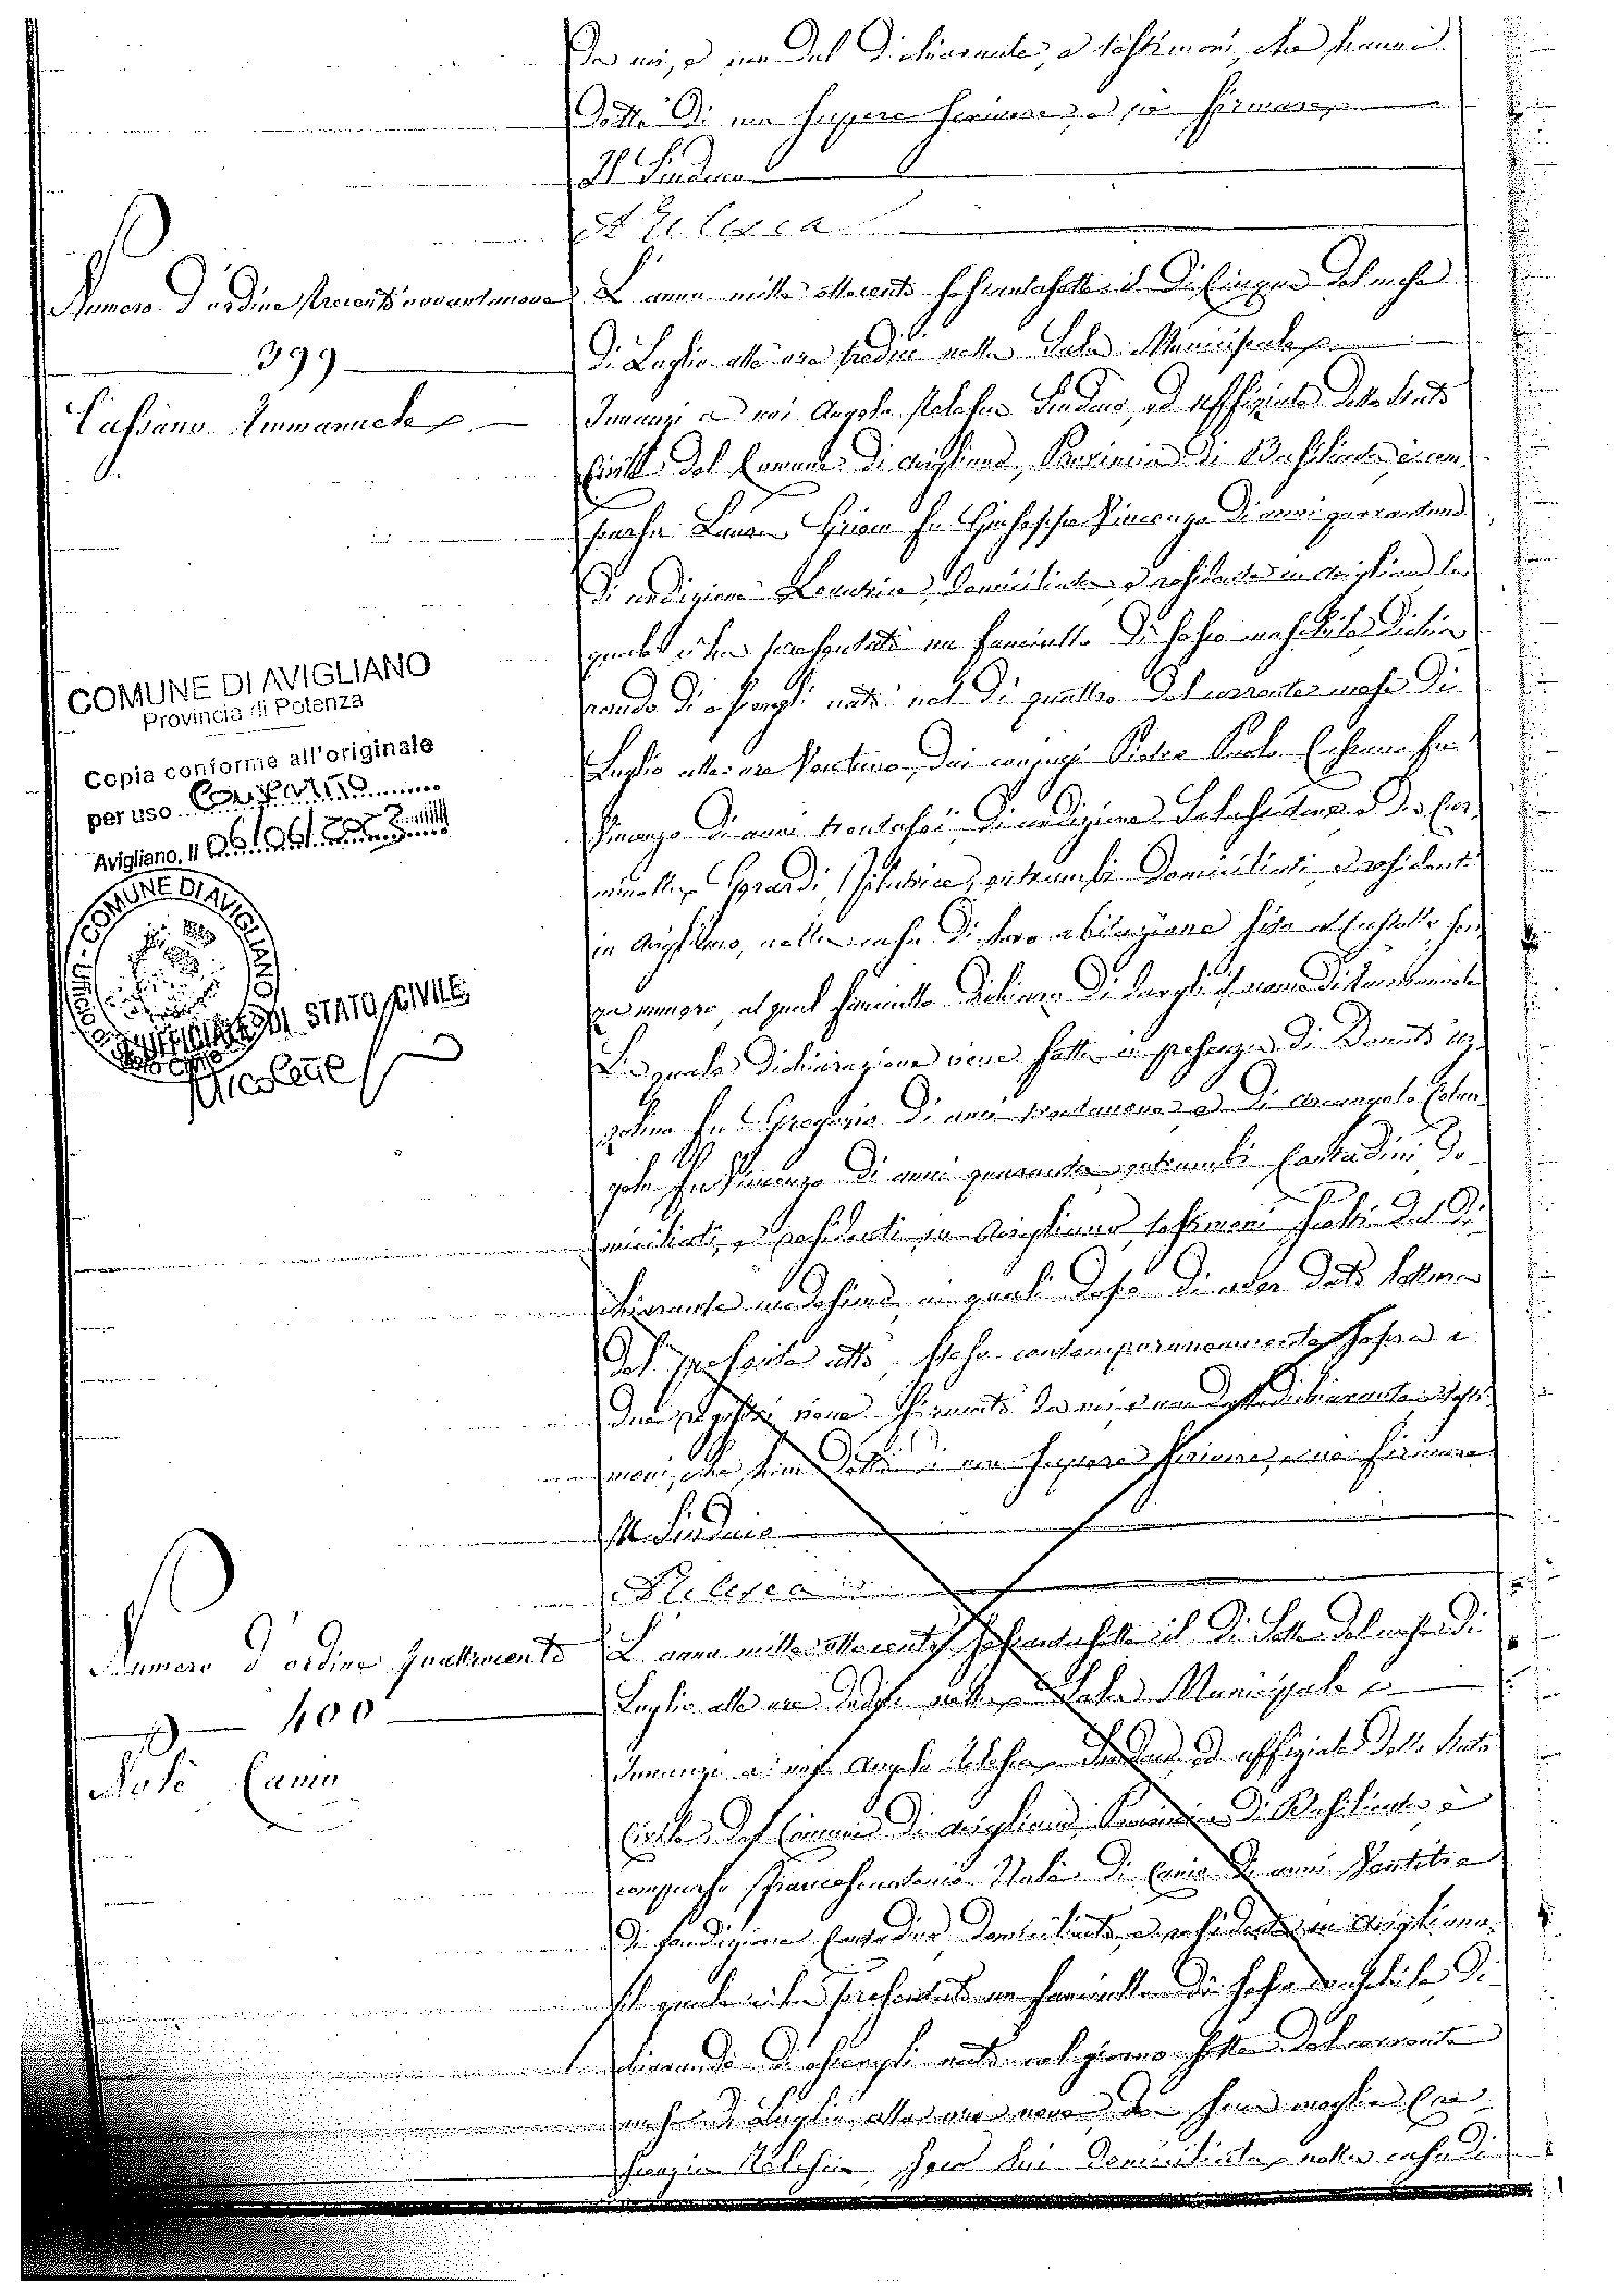 Da noi, e non dal dichiarante, e testimoni che hanno
detto di non sapere scrivere, e nè firmare
Il Sindaco
Numero d'ordine trecentonovantanove
399
Cassano Emmanuele
L'anno mille ottocento sessantasette il dì cinque del mese
di Luglio alle ore tredici nella Sala Municipale
Innanzi a noi Angelo Telesca Sindaco, ed uffiziale dello Stato
Civile del Comune di Avigliano, Provincia di Basilicata, è com
parsa Vincenzo di anni quarantuno
di condizione Levatrice, domiciliata e residente in Avigliano la
quale ci ha presentato un fanciullo di sesso maschile, dichia
rando di essergli nato nel dì quattro del corrente mese di
Luglio alle ore Ventuno, dai coniugi Pietro Paolo Cassano fu
Vincenzo di anni trentasei, di condizione e da Car
minella Gerardi, Filatrice, entrambi domiciliati, e residenti
in Avigliano, nella casa di loro abitazione sita al Castello sen
za numero, al quale fanciullo dichiara di dargli il nome di Emmanuele
La quale dichiarazione viene fatta in presenza di Donato
fu Gregorio di anni trentanove e di Arcangelo Colan
gelo fu Vincenzo di anni quaranta entrambi Contadini do
miciliati, e residenti in Avigliano testimoni scelti dal di
chiarante medesimo, ai quali dopo di aver dato lettura
del presente atto, steso contemporaneamente sopra i
due registri viene firmato da noi, e non dalla dichiarante, e testi
moni, che han detto di non sapere scrivere, e nè firmare
Il Sindaco
Telesca
COMUNE DI AVIGLIANO
Provincia di Potenza
Copia conforme all'originale
per uso
Avigliano, il 06/06/2023
COMUNE DI AVIGLIANO
UFFICIALE DI STATO CIVILE
Numero d'ordine quattrocento
400
Canio
L'anno mille ottocento sessantasette il dì Sette del mese di
Luglio alle ore dodici nella Sala Municipale
Innanzi a noi Angelo Telesca Sindaco, ed uffiziale dello Stato
Civile del Comune di Avigliano, Provincia di Basilicata, è
comparso Francescantonio di Canio di anni Ventitre
di condizione Contadino domiciliato, e residente in Avigliano,
il quale ci ha presentato un fanciullo di sesso maschile, di
chiarando di essergli nato nel giorno sette del corrente
mese di Luglio, alle ore nove da sua moglie Cre
scenzia Telesca seco lui domiciliata, nella casa di